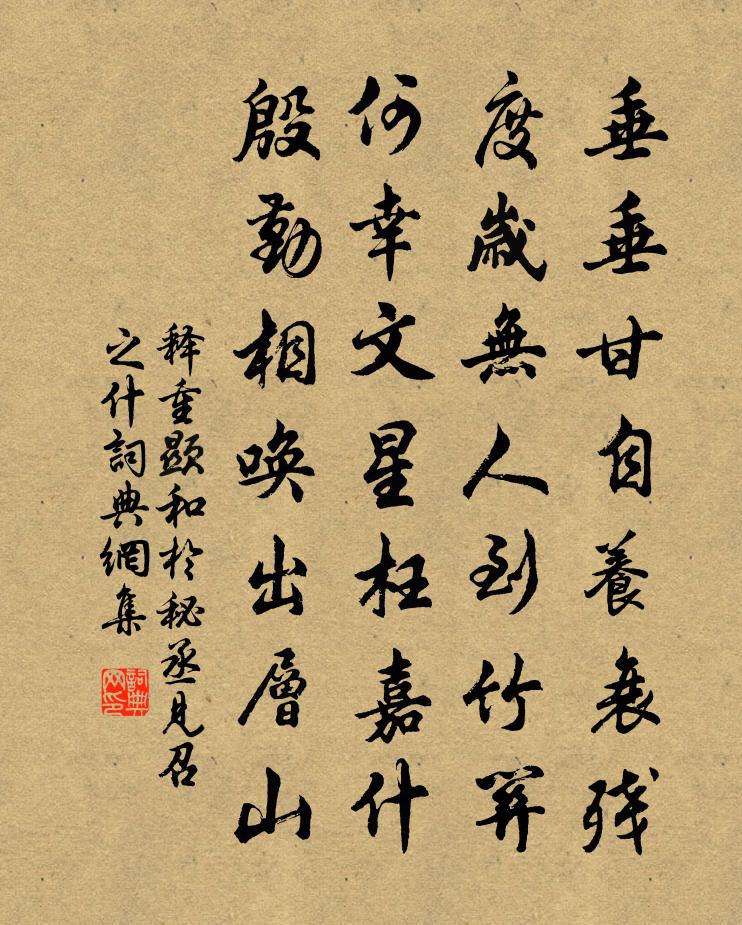 垂垂甘自養衰残
度歲無人到竹關
何幸文星枉嘉什
殷勤相唤出層山
释重顯和於秘丞見召
之什詞典網集
詞典网印